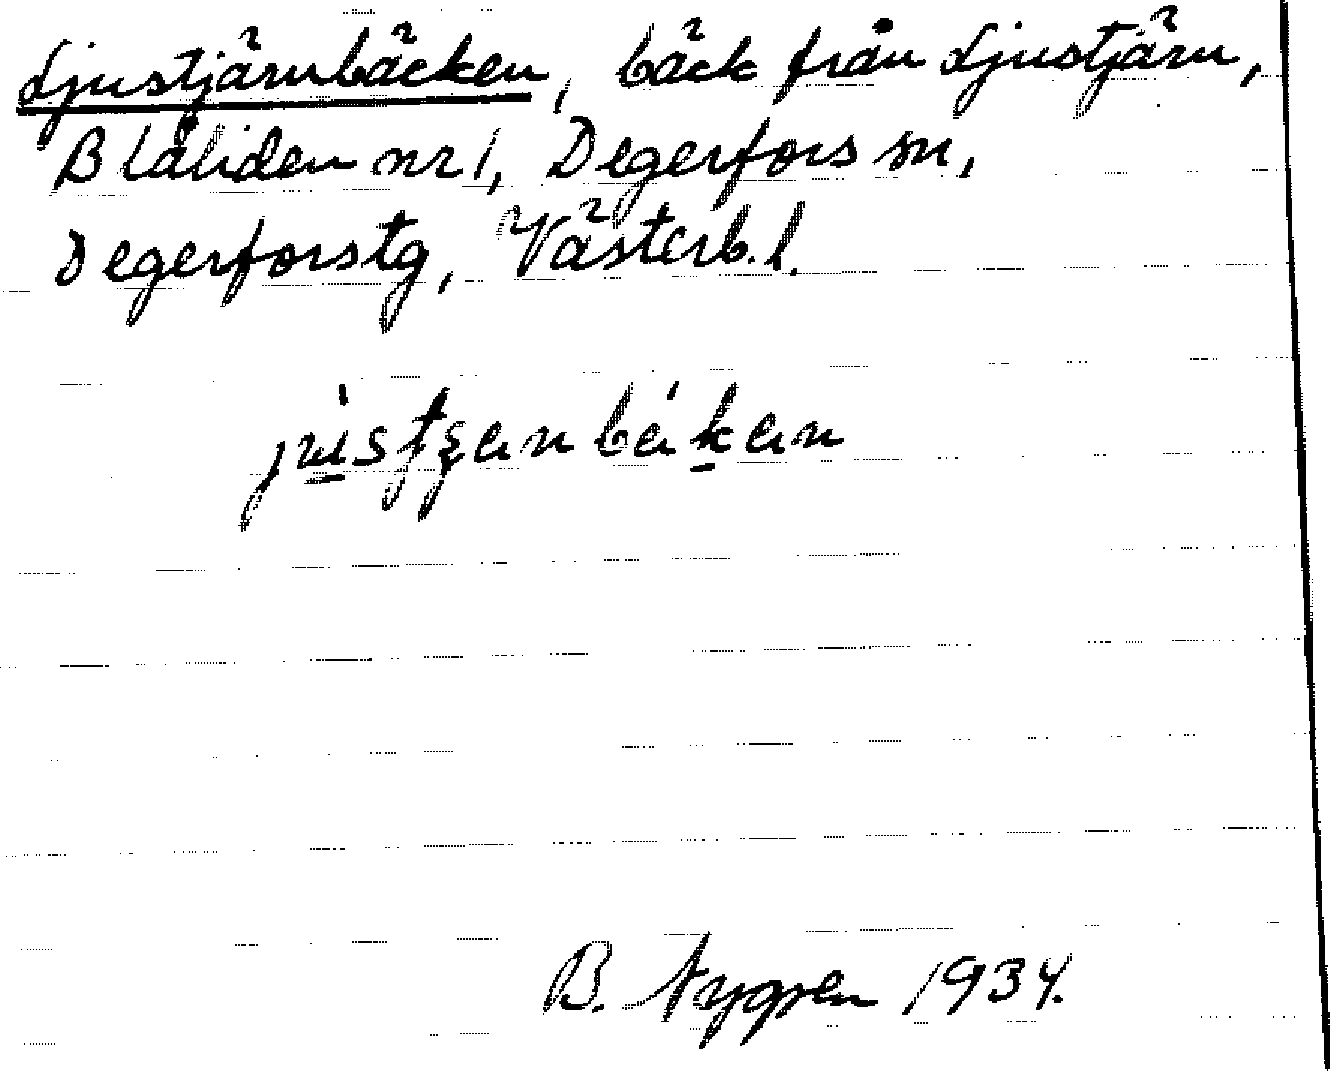 Ljustjärnbäcken, bäck från Ljustjärn,
Blåliden nr 1, Degerfors sn,
Degerforstg, Västerb. l.
B. Nygren 1934.